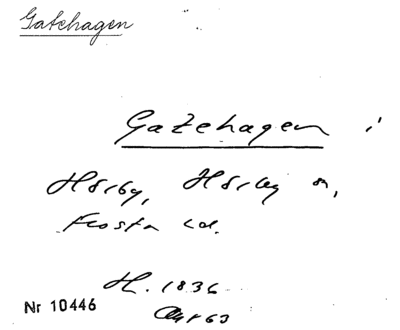 Gatehagen
Gatehagen i
Hörby, Hörby sn,
Frosta hd.
H. 1836
Nr 10446